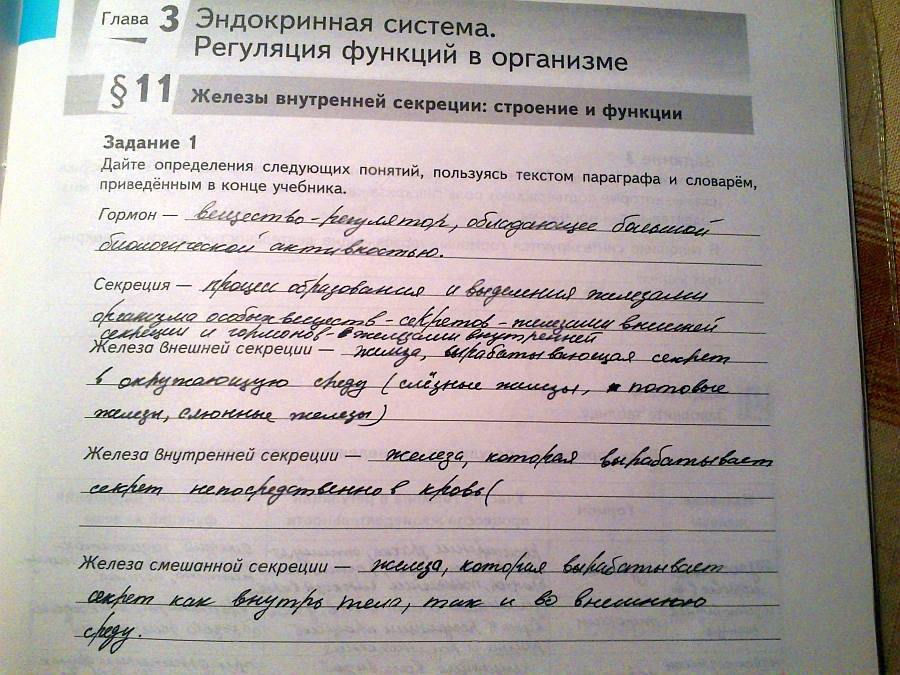 Глава 3 Эндокринная система.
Регуляция функций в организме
§ 11 Железы внутренней секреции: строение и функции
Задание 1
Дайте определения следующих понятий, пользуясь текстом параграфа и словарём,
приведённым в конце учебника.
Гормон — вещество-регулятор, обладающее большой
биологической активностью.
Секреция — процесс образования и выделения железами
организма особых веществ - секретов - железами внешней
секреции и гормонов - железами внутренней
Железа внешней секреции — железа, вырабатывающая секрет
в окружающую среду (слёзные железы, потовые
железы, слюнные железы)
Железа внутренней секреции — железа, которая вырабатывает
секрет непосредственно в кровь (
Железа смешанной секреции — железа, которая вырабатывает
секрет как внутрь тела, так и во внешнюю
среду.